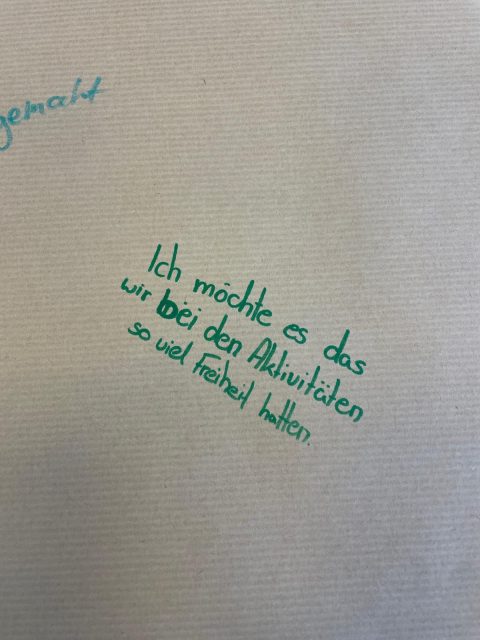 gemacht
Ich möchte es das
wir bei den Aktivitäten
so viel Freiheit hatten.